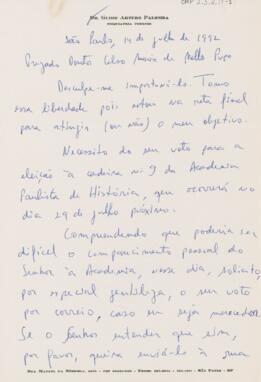 Dr. Guido Arturo Palomba
Psiquiatra Forense
São Paulo, 14 de julho de 1992
Prezado Doutor Celso Maria de Mello Pupo
Desculpe-me importuná-lo. Tomo
essa liberdade pois estou na reta final
para atingir (ou não) o meu objetivo.
Necessito do seu voto para a
eleição à cadeira nº 9 da Academia
Paulista de História, que ocorrerá no
dia 29 de julho próximo.
Compreendendo que poderia ser
difícil o comparecimento pessoal do
Senhor à Academia, nesse dia, solicito,
por especial gentileza, o seu voto
por correio, caso eu seja merecedor.
Se o Senhor entender que sim,
por favor, queira enviá-lo à sua
São Paulo - SP